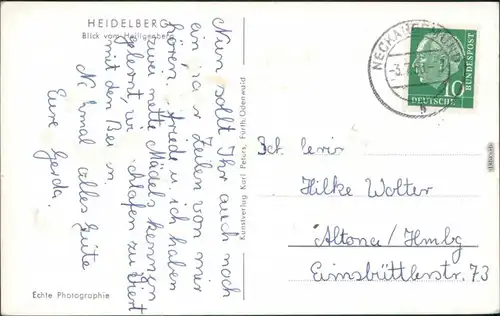 HEIDELBERG
Blick vom Heiligenberg
Nun sollt Ihr auch noch
ein paar Zeilen von mir
hören. Friede u. ich haben
zwei nette Mädels kennen
gelernt, wir schlafen zu viert
mit den Bei
Nochmal alles Gute
Eure Gerda.
Echte Photographie
Kunstverlag Karl Peters, Fürth/Odenwald
NECKARGEMÜND
DEUTSCHE BUNDESPOST
10
b
Hilke Wolter
Altona/Hmbg
Eimsbüttlerstr. 73